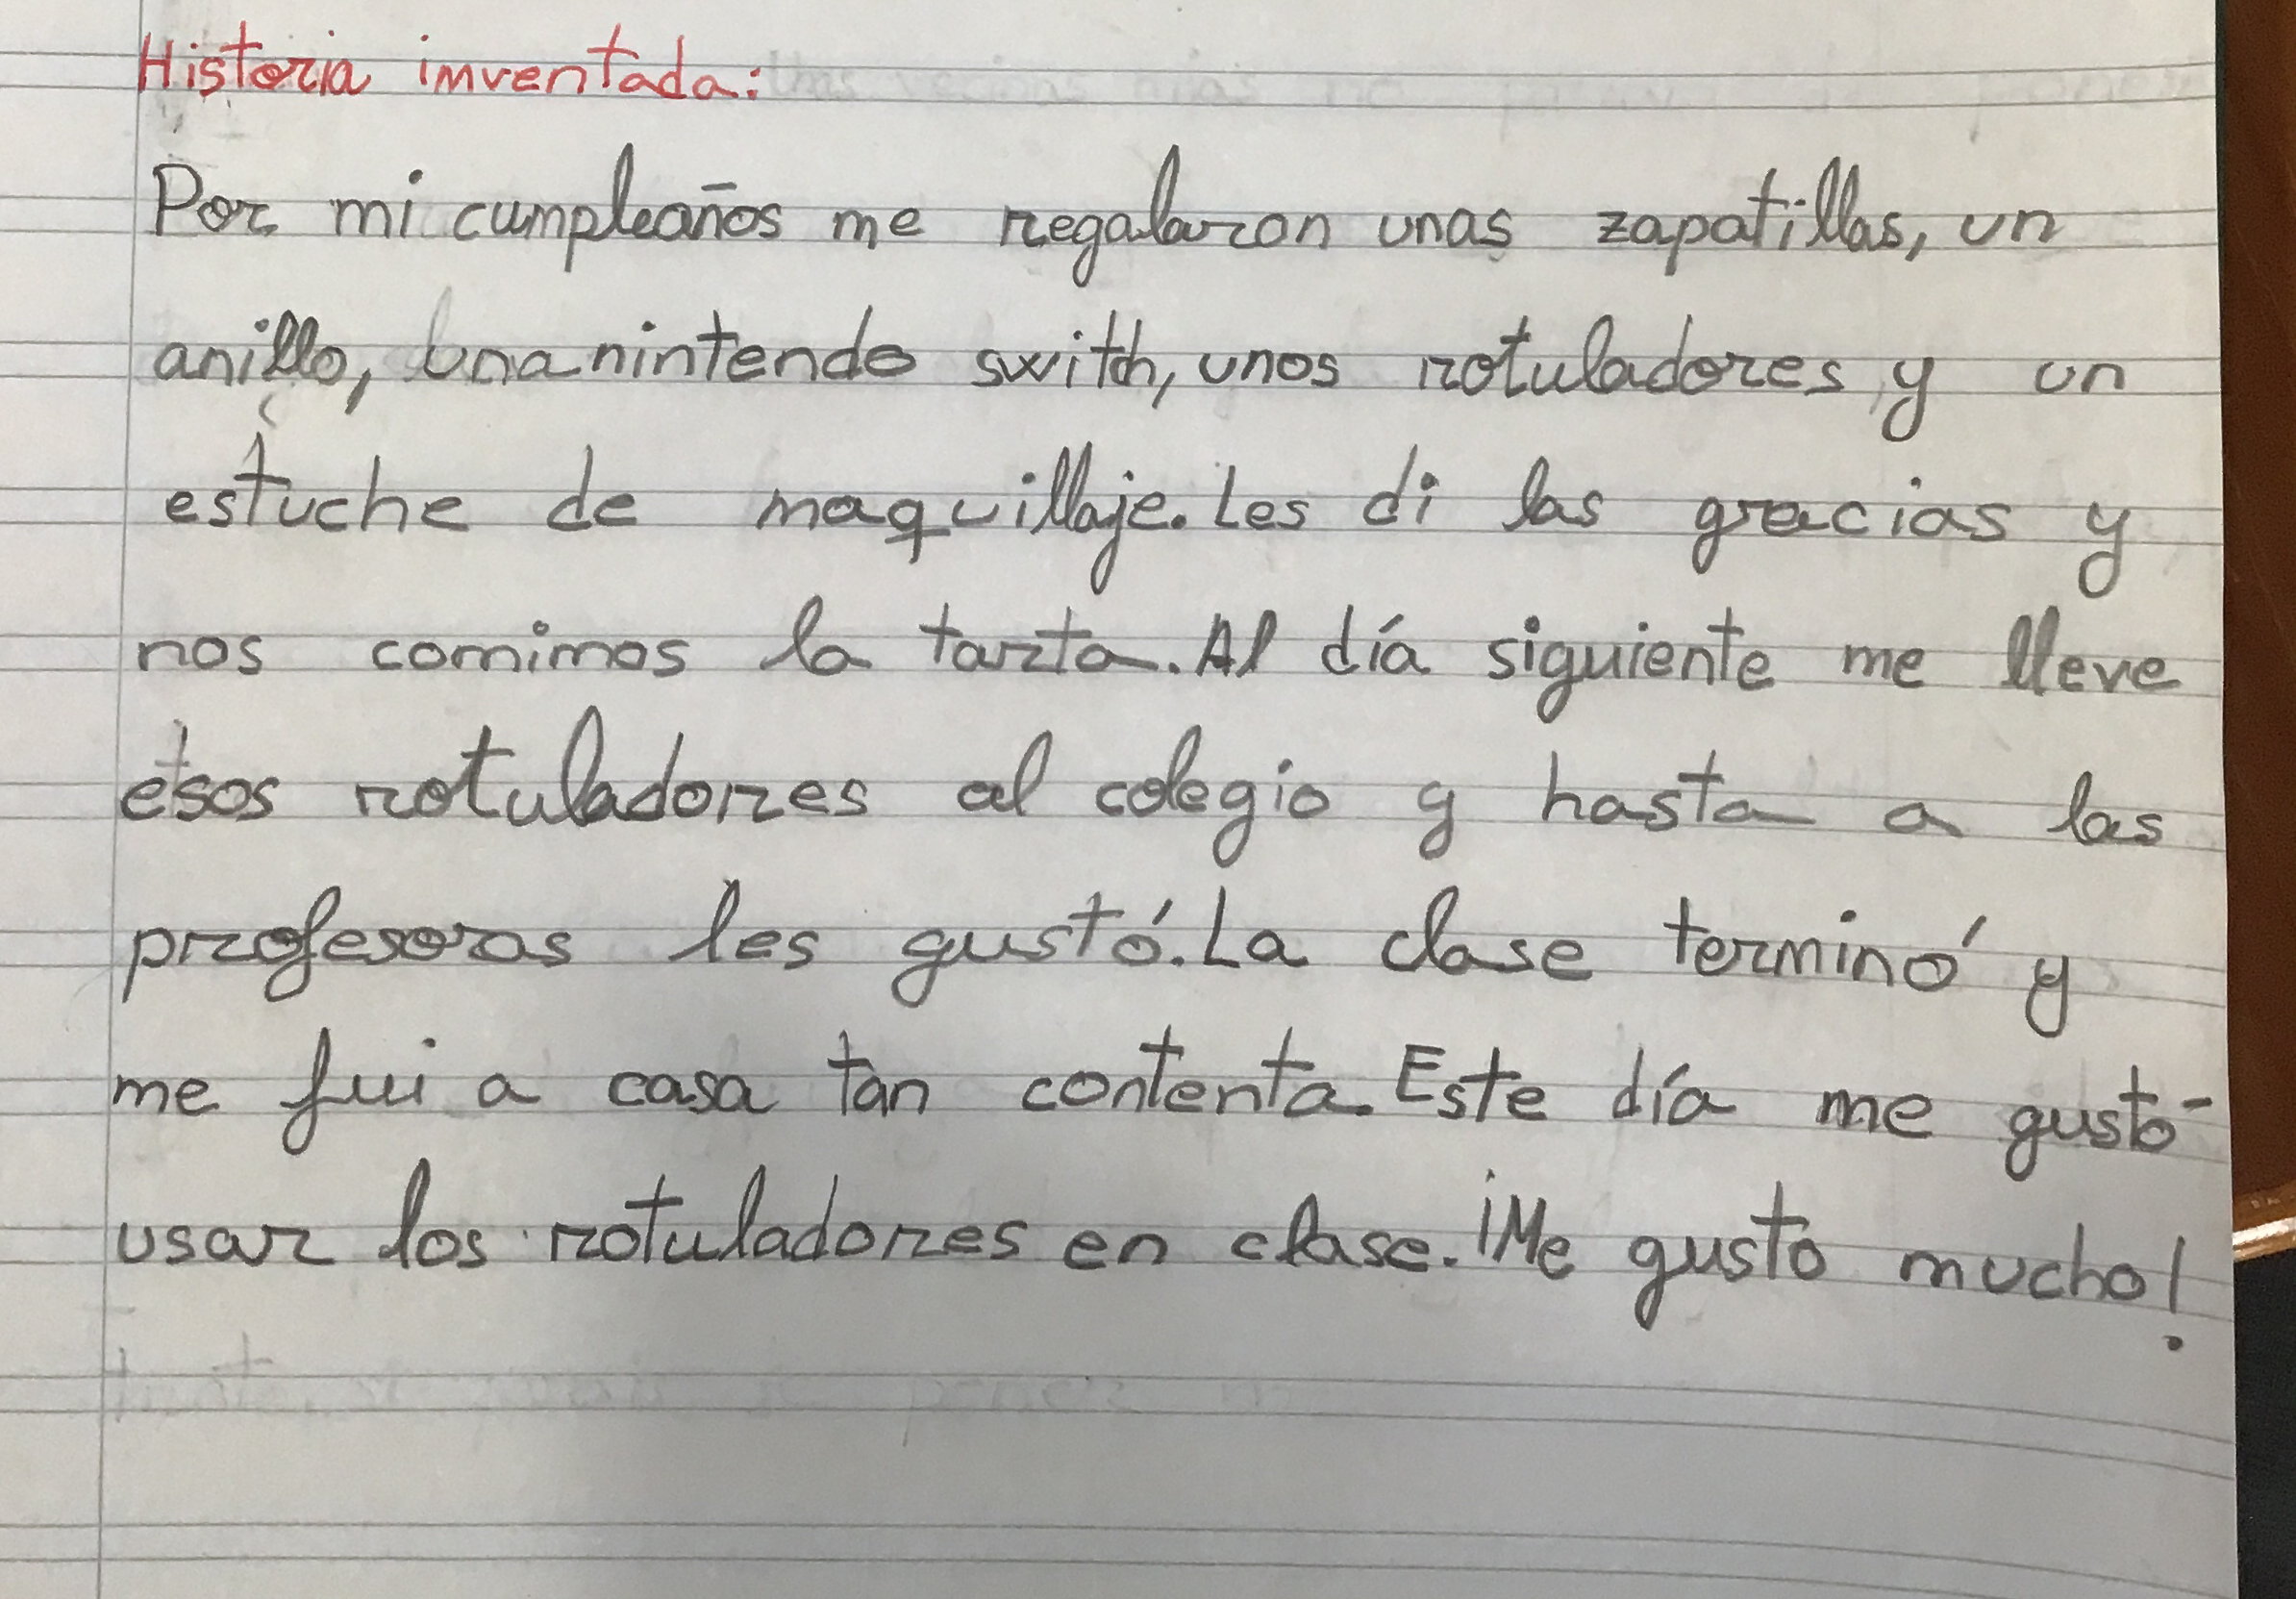 Historia imventada:
Por mi cumpleaños me regalaron unas zapatillas, un
anillo, una nintendo swith, unos rotuladores y un
estuche de maquillaje. Les di las gracias y
nos comimos la tarta. Al día siguiente me lleve
esos rotuladores al colegio y hasta a las
profesoras les gustó. La clase terminó y
me fui a casa tan contenta. Este día me gustó
usar los rotuladores en clase. ¡Me gusto mucho!